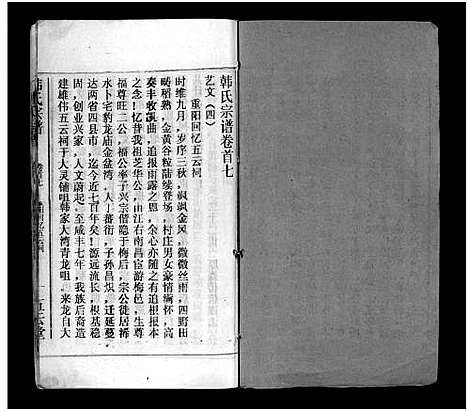 韩氏宗谱卷首七
艺文（四）
重阳回忆五云祠
时维九月，岁序三秋，飒飒金风，微微丝雨，四野田
畴稻熟，金黄谷粒陆续登场，村庄男女豪情缅怀，高
奏丰收凯曲，追报雨露之恩，余心亦随之有追根报本
之念！忆昔我祖芝华公，由江右南昌宦游梅邑，生尊
福尊旺二公，福公率子兴宗偕隐于梅后，宗公徒居狮
水卜宅豹龙庙金盆湾，人丁蕃衍，子孙昌炽，迁延蔓
达两省四县市，迄今近七百年矣！源远流长，根基稳
固，创业兴家，人文蔚起，至咸丰七年，我族后裔造
建雄伟五云祠于大灵铺咀韩家大湾青龙咀，来龙自大
韩氏宗谱
卷首七
五云堂